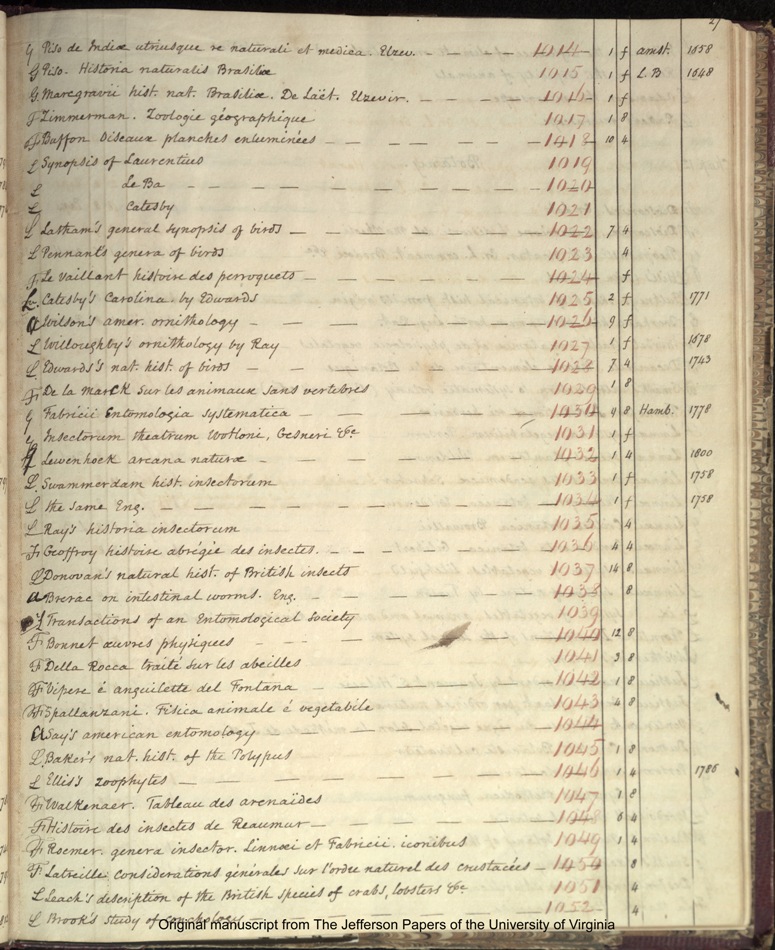 27
G Piso de Indiæ utriusque re naturali et medica. Elzev. — — — 1014 1 f amst. 1658
G Piso. Historia naturalis Brasiliæ 1015 1 f L.B 1648
G. Marcgravii hist. nat. Brasiliæ. De Laët. Elzevir. — — — 1016 1 f
F Zimmerman. Zoologie géographique 1017 1 8
F Buffon Oiseaux planches enluminées — — — — — 1018 10 4
L Synopsis of Laurentius 1019
L Le Ba — — — — — 1020
L Catesby 1021
L Latham's general synopsis of birds — — — — 1022 7 4
L Pennant's genera of birds 1023 4
F. Le Vaillant histoire des perroquets — — — — 1024 f
L. Catesby's Carolina. by Edwards 1025 2 f 1771
a Wilson's amer. ornithology — — — — — 1026 9 f
L Willoughby's ornithology by Ray 1027 1 f 1678
L. Edwards's nat. hist. of birds — — — — — 1028 7 4 1743
F. De la Marck sur les animaux sans vertebres 1029 1 8
G Fabricii Entomologia systematica — — — — 1030 9 8 Hamb. 1778
Insectorum theatrum Wottoni, Gesneri &c 1031 1 f
Lewenhock arcana naturæ — — — — — 1032 1 4 1800
L. Swammerdam hist. insectorum 1033 1 f 1758
L the same Eng. — — — — — 1034 1 f 1758
L Ray's historia insectorum 1035 4
F. Geoffroy histoire abrégie des insectes. — — — — 1036 4 4
L Donovan's natural hist. of British insects 1037 14 8
a Brerac on intestinal worms. Eng. — — — — 1038 8
Transactions of an Entomological Society 1039
F Bonnet œuvres physiques — — — — 1040 12 8
F Della Rocca traité sur les abeilles 1041 3 8
F Vipere é anguilette del Fontana — — — — 1042 1 8
F Spallanzani. Fisica animale é vegetabile 1043 4 8
a Say's american entomology — — — — — 1044
L. Baker's nat. hist. of the Polypus 1045 1 8
L Ellis's zoophytes — — — — — 1046 1 4 1786
F. Walkenaer. Tableau des arenaïdes 1047 1 8
F. Histoire des insectes de Reaumur — — — — 1048 6 4
F. Roemer. genera insector. Linnæi et Fabricii. iconibus 1049 1 4
F Latreille considerations générales sur l'ordre naturel des crustacées — 1050 8
L Leach's description of the British species of crabs, lobsters &c 1051 4
L Brook's study of conchology — — — — 1052 4
Original manuscript from The Jefferson Papers of the University of Virginia